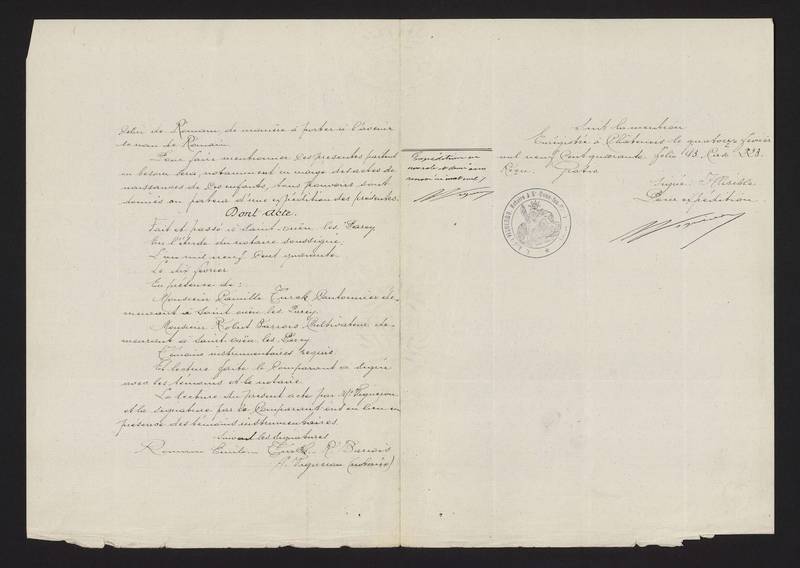 celui de Romain, de manière à porter à l'avenir
le nom de Romain.
Pour faire mentionner les présentes partout
où besoin sera, notamment en marge des actes de
naissances de ses enfants, tous pouvoirs sont
donnés au porteur d'une expédition des présentes.
Dont Acte.
Fait et passé à Saint-ouen les Parey
En l'étude du notaire soussigné,
L'an mil neuf Cent quarante
Le dix février
En présence de :
Monsieur Camille Turck Cantonnier de-
meurant à Saint ouen les Parey.
Monsieur Robert Barrois Cultivateur de-
meurant à Saint-ouen les Parey
Témoins instrumentaires requis.
Et lecture faite le Comparant a signé
avec les témoins et le notaire.
La lecture du présent acte par Me Vigneron
et la signature par le Comparant ont eu lieu en
présence des témoins instrumentaires
Suivent les signatures
Romain Turck R. Barrois
A. Vigneron (notaire)
Expédition en
un role et demi sans
renvoi ni mot nul
Suit la mention
Enregistré à Châtenois le quatorze février
mil neuf Cent quarante, folio 93, Case 333.
Reçu :
Signé :
Pour expédition